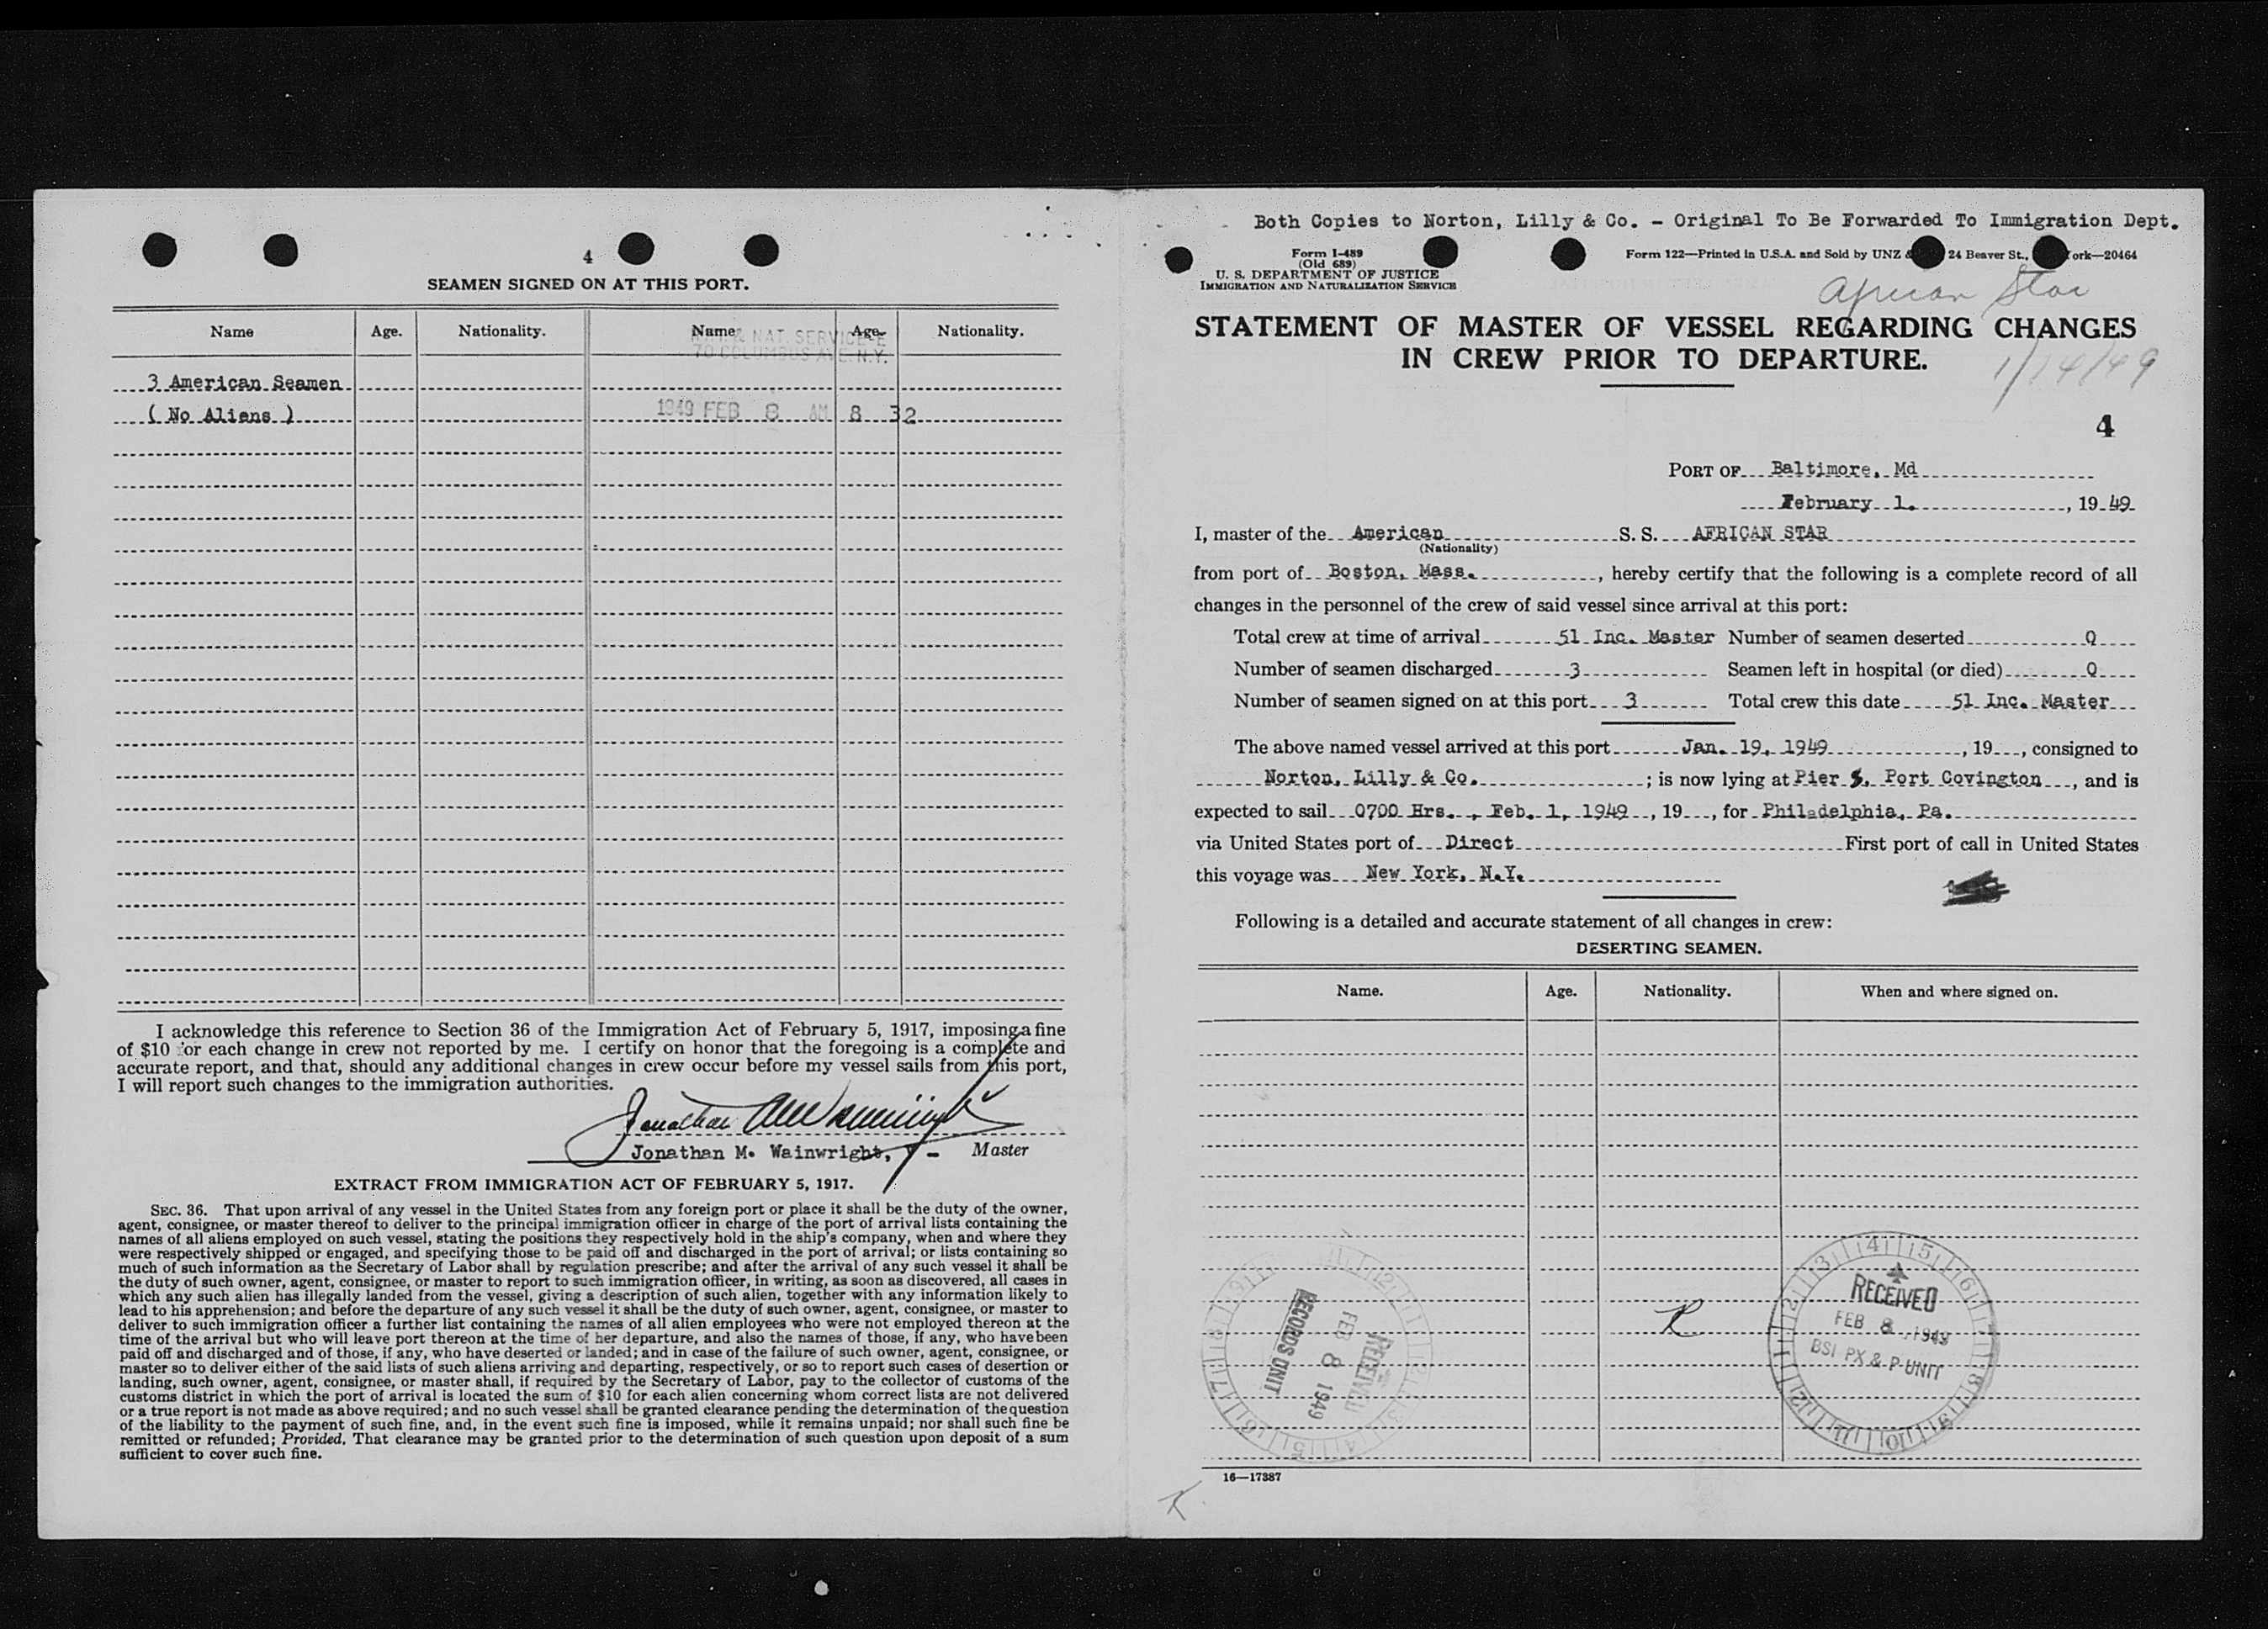 4
SEAMEN SIGNED ON AT THIS PORT.
Name Age. Nationality. Name Age. Nationality.
& NAT. SERVICE
70 COLUMBUS AVE. N.Y.
3 American Seamen
( No Aliens )
1949 FEB 8 AM 8 32
I acknowledge this reference to Section 36 of the Immigration Act of February 5, 1917, imposing a fine
of $10 for each change in crew not reported by me. I certify on honor that the foregoing is a complete and
accurate report, and that, should any additional changes in crew occur before my vessel sails from this port,
I will report such changes to the immigration authorities.
Jonathan M Wainwright
Jonathan M. Wainwright, V - Master
EXTRACT FROM IMMIGRATION ACT OF FEBRUARY 5, 1917.
SEC. 36. That upon arrival of any vessel in the United States from any foreign port or place it shall be the duty of the owner,
agent, consignee, or master thereof to deliver to the principal immigration officer in charge of the port of arrival lists containing the
names of all aliens employed on such vessel, stating the positions they respectively hold in the ship's company, when and where they
were respectively shipped or engaged, and specifying those to be paid off and discharged in the port of arrival; or lists containing so
much of such information as the Secretary of Labor shall by regulation prescribe; and after the arrival of any such vessel it shall be
the duty of such owner, agent, consignee, or master to report to such immigration officer, in writing, as soon as discovered, all cases in
which any such alien has illegally landed from the vessel, giving a description of such alien, together with any information likely to
lead to his apprehension; and before the departure of any such vessel it shall be the duty of such owner, agent, consignee, or master to
deliver to such immigration officer a further list containing the names of all alien employees who were not employed thereon at the
time of the arrival but who will leave port thereon at the time of her departure, and also the names of those, if any, who have been
paid off and discharged and of those, if any, who have deserted or landed; and in case of the failure of such owner, agent, consignee, or
master so to deliver either of the said lists of such aliens arriving and departing, respectively, or so to report such cases of desertion or
landing, such owner, agent, consignee, or master shall, if required by the Secretary of Labor, pay to the collector of customs of the
customs district in which the port of arrival is located the sum of $10 for each alien concerning whom correct lists are not delivered
or a true report is not made as above required; and no such vessel shall be granted clearance pending the determination of the question
of the liability to the payment of such fine, and, in the event such fine is imposed, while it remains unpaid; nor shall such fine be
remitted or refunded; Provided, That clearance may be granted prior to the determination of such question upon deposit of a sum
sufficient to cover such fine.
Both Copies to Norton, Lilly & Co. - Original To Be Forwarded To Immigration Dept.
Form I-489
(Old 689)
U. S. DEPARTMENT OF JUSTICE
IMMIGRATION AND NATURALIZATION SERVICE
Form 122—Printed in U.S.A. and Sold by UNZ & 24 Beaver St., ork—20464
African Star
STATEMENT OF MASTER OF VESSEL REGARDING CHANGES
IN CREW PRIOR TO DEPARTURE.
1/14/49
4
PORT OF Baltimore, Md
February 1. , 19 49
I, master of the American S. S. AFRICAN STAR
(Nationality)
from port of Boston, Mass. , hereby certify that the following is a complete record of all
changes in the personnel of the crew of said vessel since arrival at this port:
Total crew at time of arrival 51 Inc. Master Number of seamen deserted 0
Number of seamen discharged 3 Seamen left in hospital (or died) 0
Number of seamen signed on at this port 3 Total crew this date 51 Inc. Master
The above named vessel arrived at this port Jan. 19, 1949 , 19 , consigned to
Norton, Lilly & Co. ; is now lying at Pier 5, Port Covington , and is
expected to sail 0700 Hrs. , Feb. 1, 1949 , 19 , for Philadelphia, Pa.
via United States port of Direct First port of call in United States
this voyage was New York, N.Y.
Following is a detailed and accurate statement of all changes in crew:
DESERTING SEAMEN.
Name. Age. Nationality. When and where signed on.
RECEIVED
FEB 8 1949
RECORDS UNIT
R
RECEIVED
FEB 8 1949
BSI PX & P-UNIT
16—17387